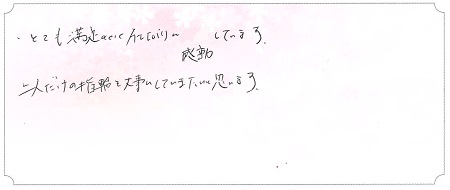 ・とても満足 しています。
感動
二人だけの指輪を大事にしていきたいと思います。